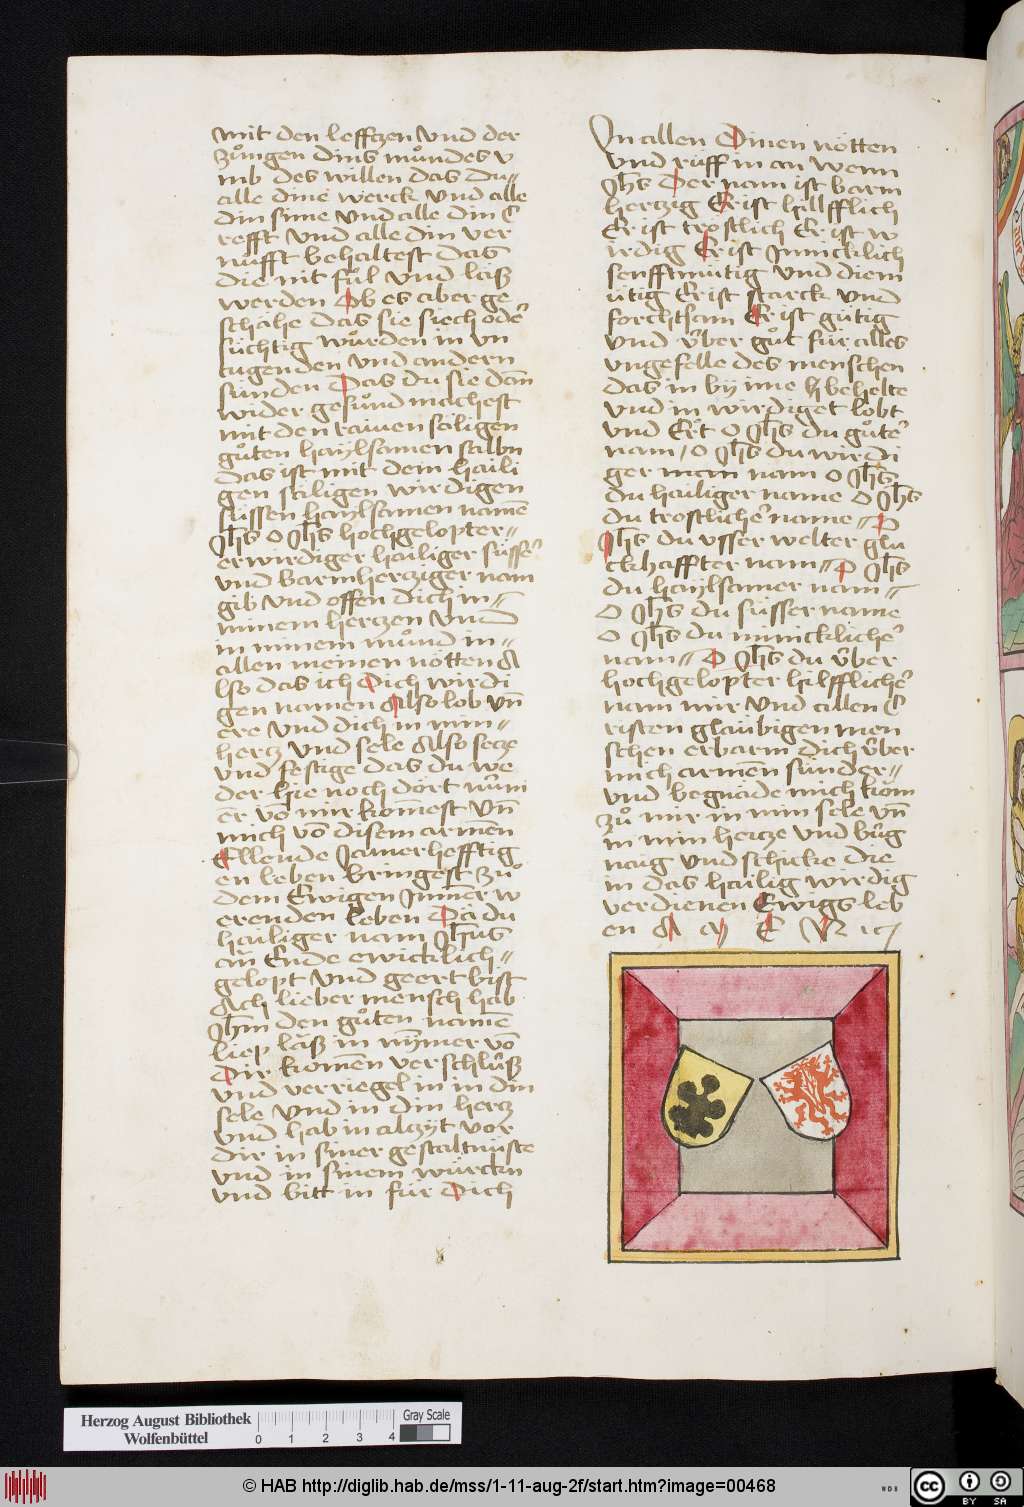 mit den leffczen vnd der
zůngen dins můndes v
mb des willen das du
alle dine werck vnd alle
din sinne vnd alle din C
refft vnd alle din ver
nůfft behaltest das
die nit fůl vnd läß
werden Ob es aber ge
schähe das sie siech odeʳ
süchtig würden in vn
tugenden vnd andern
sünden Das du sie dañ
wider gesůnd machest
mit den rainen säligen
gůten haylsamen salbn
das ist mit dem haili
gen säligen wirdigen
süssen haylsamen namē
Jh̄s o Jh̄s hochgelopter
erwirdiger hailiger süsseʳ
vnd barmhercziger nam
gib vnd offen dich in
minem herczen vnd
in minem můnd in
allen meinen nötten A
lso das ich Dich wirdi
gen namen Also lob vn̄
ere vnd dich in min
hercz vnd sele Also secze
vnd festige das du we
der hie noch dort nům̄
er vō mir komest vn̄
mich vō disem armen
Ellende Jamerhefftig
en leben bringest zů
dem Ewigen Jmmer w
erenden leben Da du
hailiger nam Jhesus
an Ende ewicklich
gelopt vnd geert bist
Ach lieber mensch hab
Jh̄m den gůten namē
liep läß in nymer vō
Dir komen verschlůß
vnd verriegel in in din
sele vnd in din hercz
vnd hab in alczyt vor
dir in siner gestaltnüste
vnd in sinem würckn
vnd bitt in für Dich
Jn allen Dinen nötten
vnd rüff in an wenn
Jh̄s Der nam ist barm
herczig Er ist hillfflich
Er ist tröstlich Er ist w
irdig Er ist Jnnicklich
senfftmütig vnd diem
ütig Er ist starck vnd
forchtsam Er ist gütig
vnd v̈ber gůt für alles
vngefelle des menschen
das in by ime behelte
vnd in wirdiget lobt
vnd Ert o Jh̄s du gůteʳ
nam / o Jh̄s du wirdi
ger nam o Jh̄s
du hailiger name O Jh̄s
du trostlicheʳ name O
Jh̄s du vsser welter glü
ckhaffter nam O Jh̄s
du haylsamer nam
O Jh̄s du süsser name
O Jh̄s du minicklicheʳ
nam O Jh̄s du v̈ber
hochgelopter hilfflicheʳ
nam mir vnd allen C
risten gläubigen men
schen erbarm dich v̈ber
mich armen sünder
vnd begnäde mich kom
zů mir in min sele vn̄
in min hercze vnd büg
naig vnd schicke die
in das hailig wirdig
verdienen Ewigs leb
en A M E N
Herzog August Bibliothek
Wolfenbüttel
0 1 2 3 4
Gray Scale
© HAB http://diglib.hab.de/mss/1-11-aug-2f/start.htm?image=00468
cc BY SA